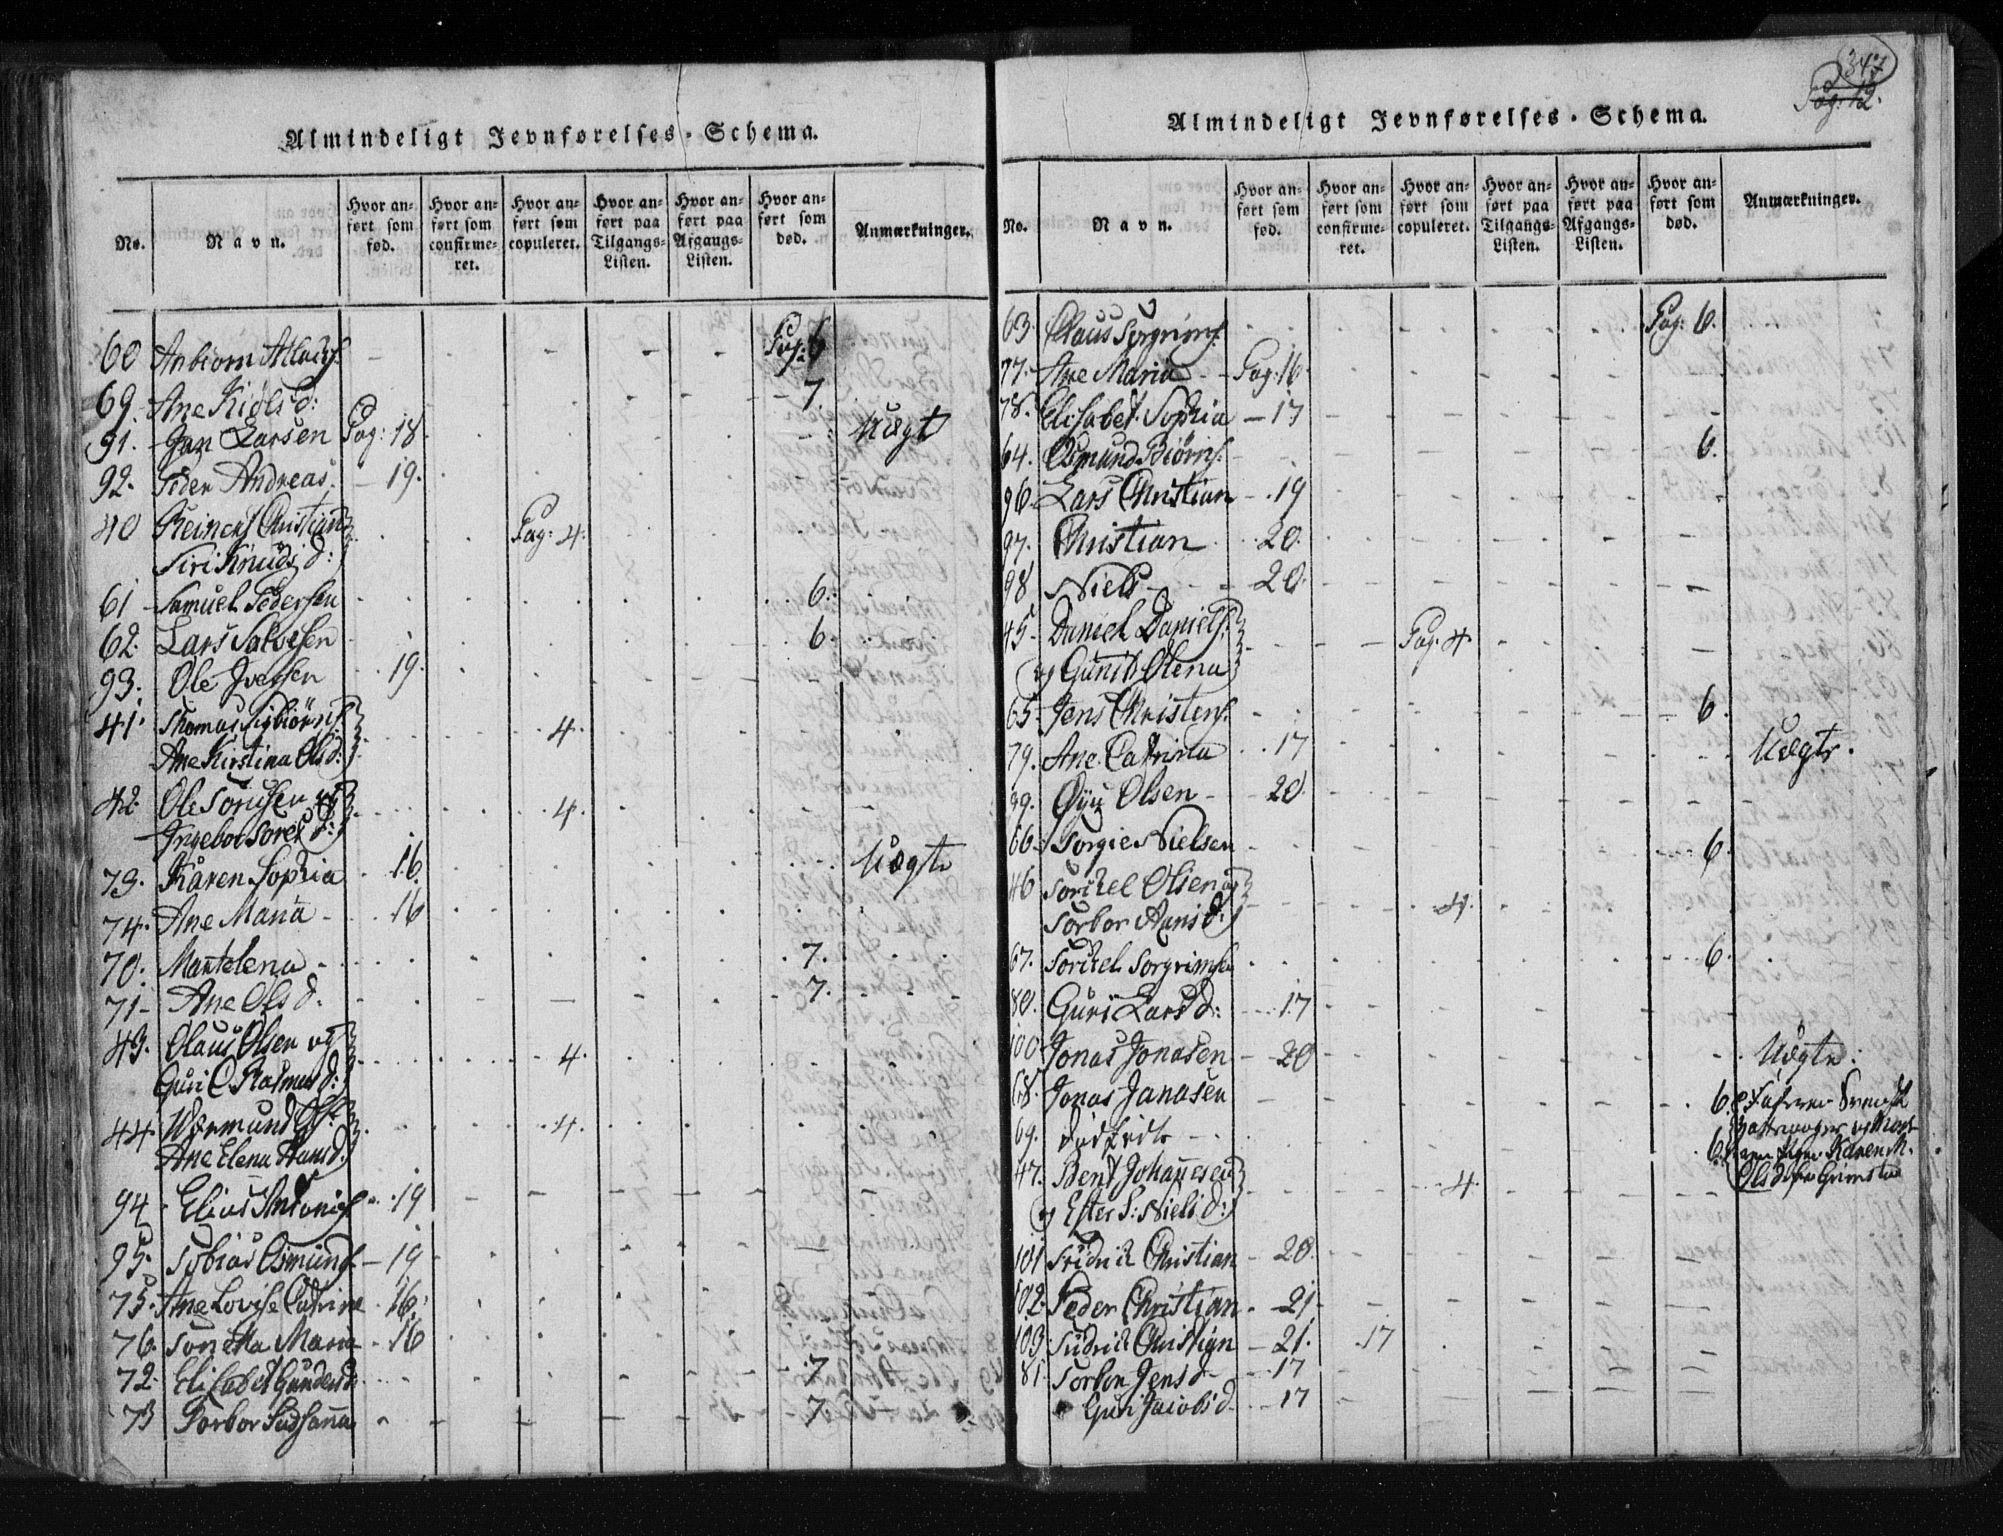 Almindeligt Jevnførelses-Schema.
No. Navn. Hvor anført som fød. Hvor anført som confirmeret. Hvor anført som copuleret. Hvor anført paa Tilgangs-Listen. Hvor anført paa Afgangs-Listen. Hvor anført som død. Anmærkninger.
60 Anbiorn Pag: 6
69. Ane Kiøls d: 7
91. Jan Larsen Pag: 18. Uægt
92. Peder Andreas. 19.
40 Reinert Christian Pag: 4.
Siri Knuds d:
61 Samuel Pedersen 6.
62. Lars Salvesen 6.
93. Ole Iversen 19.
41. Thomas 4.
Ane Kirstina Ols d:
42. Ole 4.
Ingebor d:
73. Karen Sophia 16. Uægte
74. Ane Maria 16
70. Mantelena 7.
71 Ane Ols d. 7.
43. Olaus Olsen og 4.
Guri C. Rasmus d:
44. Wærmund 4.
Ane Elena Hans d.
94. Elias 19
95. Tobias Osmunds 19
75. Ane Lovise Catrine 16.
76. Tonetta Maria 16
72. Elisabet Gunders d. 7
73 Torbor Susanna 7.
347
Pag: 12.
Almindeligt Jevnførelses-Schema.
No. Navn. Hvor anført som fød. Hvor anført som confirmeret. Hvor anført som copuleret. Hvor anført paa Tilgangs-Listen. Hvor anført paa Afgangs-Listen. Hvor anført som død. Anmærkninger.
63. Claus Torgrims. Pag: 6.
77. Ane Maria Pag: 16.
78. Elisabet Sophia 17
64. Osmund Biørns. 6.
96. Lars Christian 19
97. Christian 20.
98 Niels 20.
45. Daniel Daniels. Pag: 4.
og Gunild Olena
65. Jens Christens. 6.
79. Ane Catrina 17 Uægte.
99. Olsen 20.
66. Torgie Nielsen 6.
46 Torkel Olsen og 4.
Torbor Aanis d:
67. Torkel Torgrimsen 6.
80. Guri Lars d: 17
100. Jonas Jonasen 20 Uægte.
68. Jonas Janasen 6.
69. 6.
Karen M.
47. Bent Johannesen 4.
Ols d. fra Grimstad
og Ester S: Niels d:
101 Fridrich Christian 20.
102. Peder Christian 21.
103. Fridrich Christian 21. 17
81. Torbor Jens d. 17
Guri Jacobs d. 17